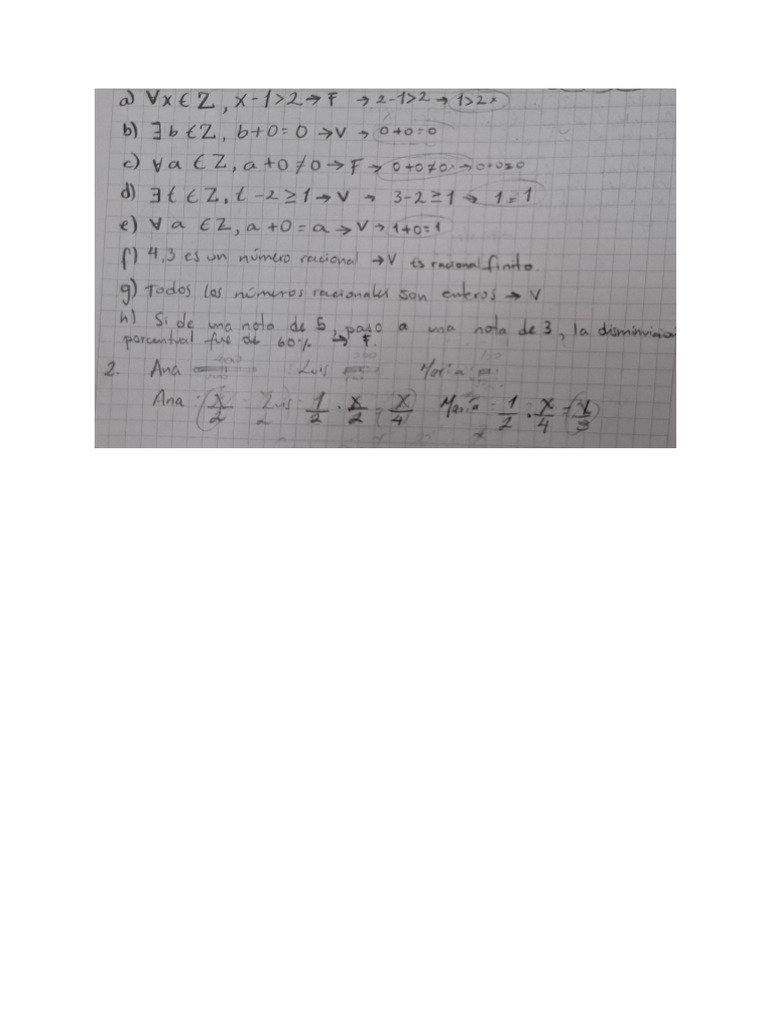 a) ∀x ∈ Z, x-1>2 → F → 2-1>2 → 1>2 x
b) ∃ b ∈ Z, b+0=0 → V → 0+0=0
c) ∀a ∈ Z, a+0≠0 → F → 0+0≠0 → 0+0=0
d) ∃ t ∈ Z, t-2≥1 → V → 3-2≥1 → 1=1
e) ∀ a ∈ Z, a+0=a → V → 1+0=1
f) 4,3 es un número racional → V Es racional finito.
g) Todos los números racionales son enteros → V
h) Si de una nota de 5, paso a una nota de 3, la
porcentual fue de 60% ↳ F.
2. Ana Luis María
Ana: x/2 Luis 1/2 · x/2 = x/4 María 1/2 · x/4 =